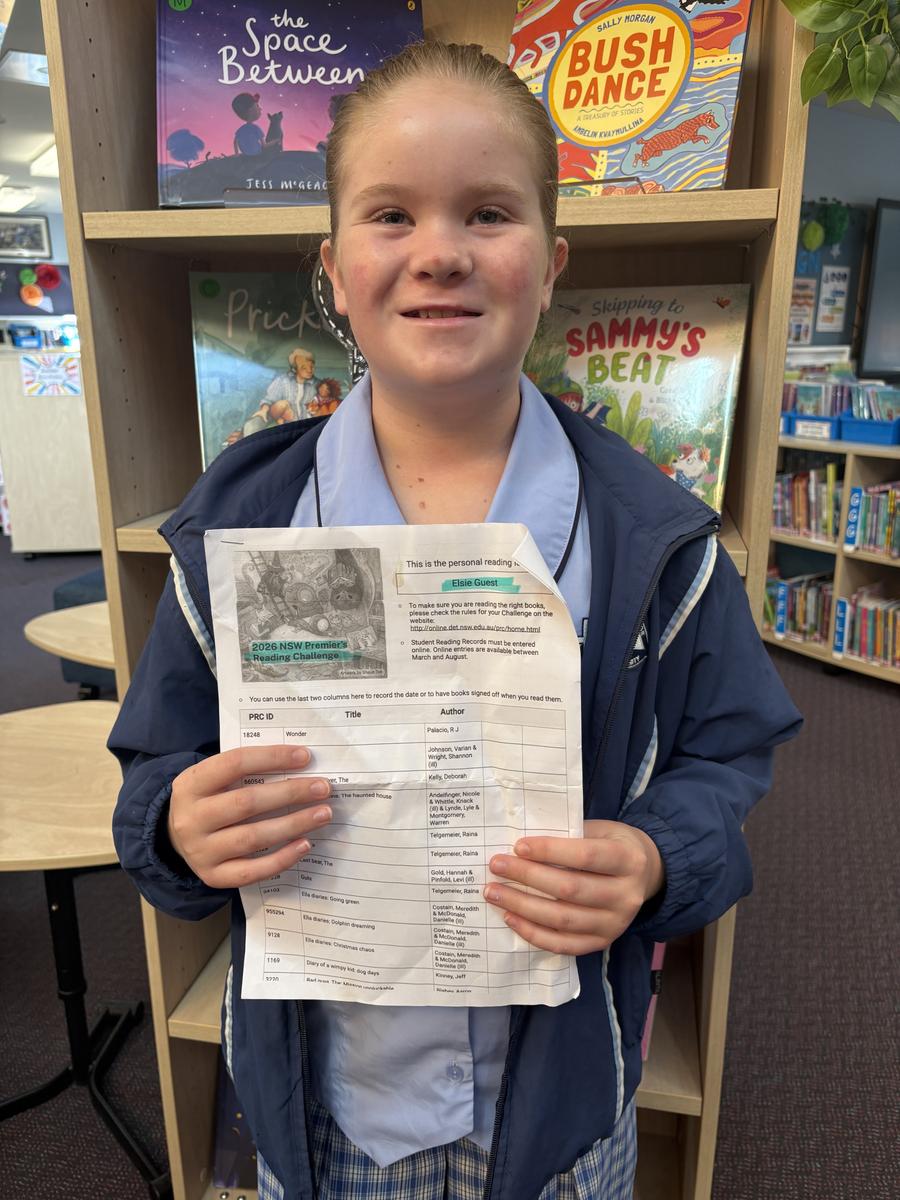 the
Space
Between
JESS McGEAC
SALLY MORGAN
BUSH
DANCE
A TREASURY OF STORIES
AMBELIN KWAYMULLINA
Prick
Skipping to
SAMMY'S
BEAT
This is the personal reading
Elsie Guest
To make sure you are reading the right books,
please check the rules for your Challenge on the
website:
http://online.det.nsw.edu.au/prc/home.html
Student Reading Records must be entered
online. Online entries are available between
March and August.
2026 NSW Premier's
Reading Challenge
You can use the last two columns here to record the date or to have books signed off when you read them.
PRC ID Title Author
18248 Wonder Palacio, R J
Johnson, Varian &
Wright, Shannon
(ill)
660543 The Kelly, Deborah
The haunted house Andelfinger, Nicole
& Whittle, Knack
(ill) & Lynde, Lyle &
Montgomery,
Warren
Telgemeier, Raina
Telgemeier, Raina
Last bear, The Gold, Hannah &
Pinfold, Levi (ill)
Guts Telgemeier, Raina
Ella diaries: Going green Costain, Meredith
& McDonald,
Danielle (ill)
955294 Ella diaries: Dolphin dreaming Costain, Meredith
& McDonald,
Danielle (ill)
9128 Ella diaries: Christmas chaos Costain, Meredith
& McDonald,
Danielle (ill)
1169 Diary of a wimpy kid: dog days Kinney, Jeff